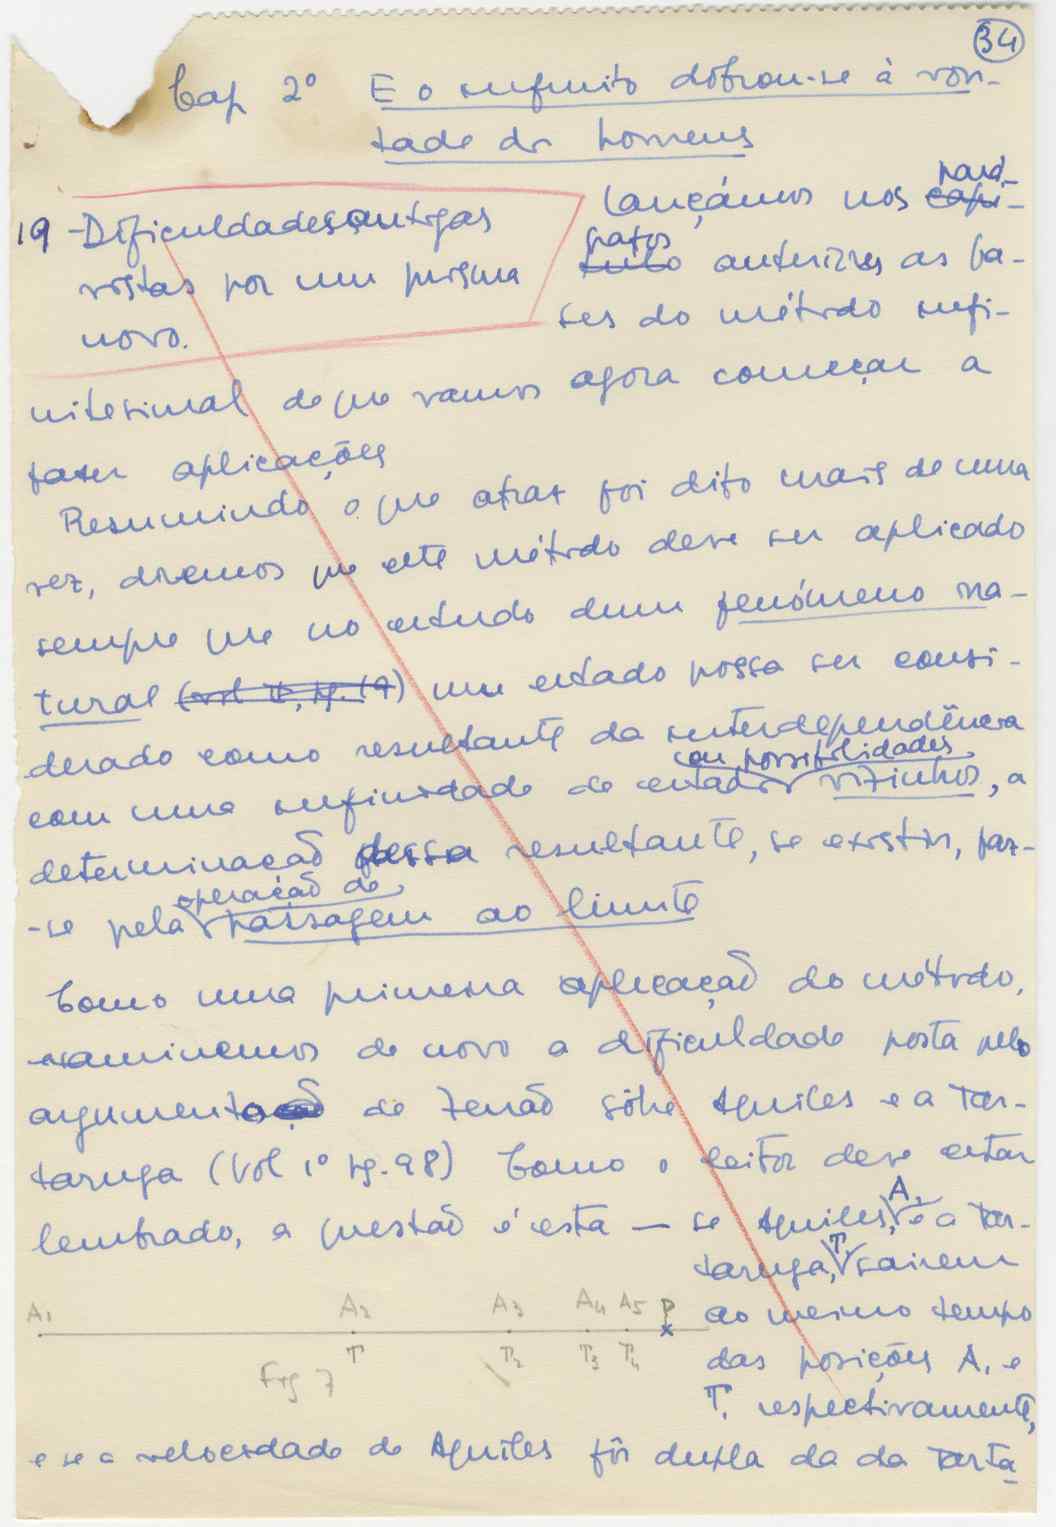 34
Cap 2º E o infinito dobrou-se à von-
tade dos homens
19 - Dificuldades antigas
vistas por um prisma
novo.
Lançámos nos capí- pará-
tulo grafos anteriores as ba-
ses do método infi-
nitesimal de que vamos agora começar a
fazer aplicações
Resumindo o que atraz foi dito mais de uma
vez, diremos que este método deve ser aplicado
sempre que no estudo dum fenómeno na-
tural (vol II, pg. 19) um estado possa ser consi-
derado como resultante da interdependência
ou possibilidades
com uma infinidade de estados vizinhos, a
determinação dessa resultante, se existir, faz-
operação de
-se pela passagem ao limite
Como uma primeira aplicação do método,
examinemos de novo a dificuldade posta pelo
argumento de Zenão sôbre Aquiles e a Tar-
taruga (Vol 1º pg. 98) Como o leitor deve estar
lembrado, a questão é esta — se Aquiles, A, e a Tar-
taruga, T, sairem
ao mesmo tempo
das posições A₁ e
T₁ respectivamente,
A₁ A₂ A₃ A₄ A₅ P
T T₂ T₃ T₄
Fig 7
e se a velocidade de Aquiles fôr dupla da da Tarta